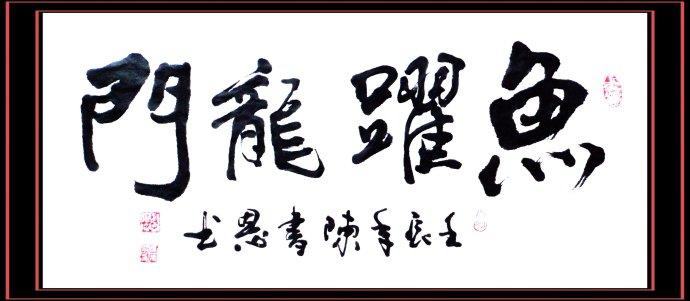 魚躍龍門
壬辰年陳書恩